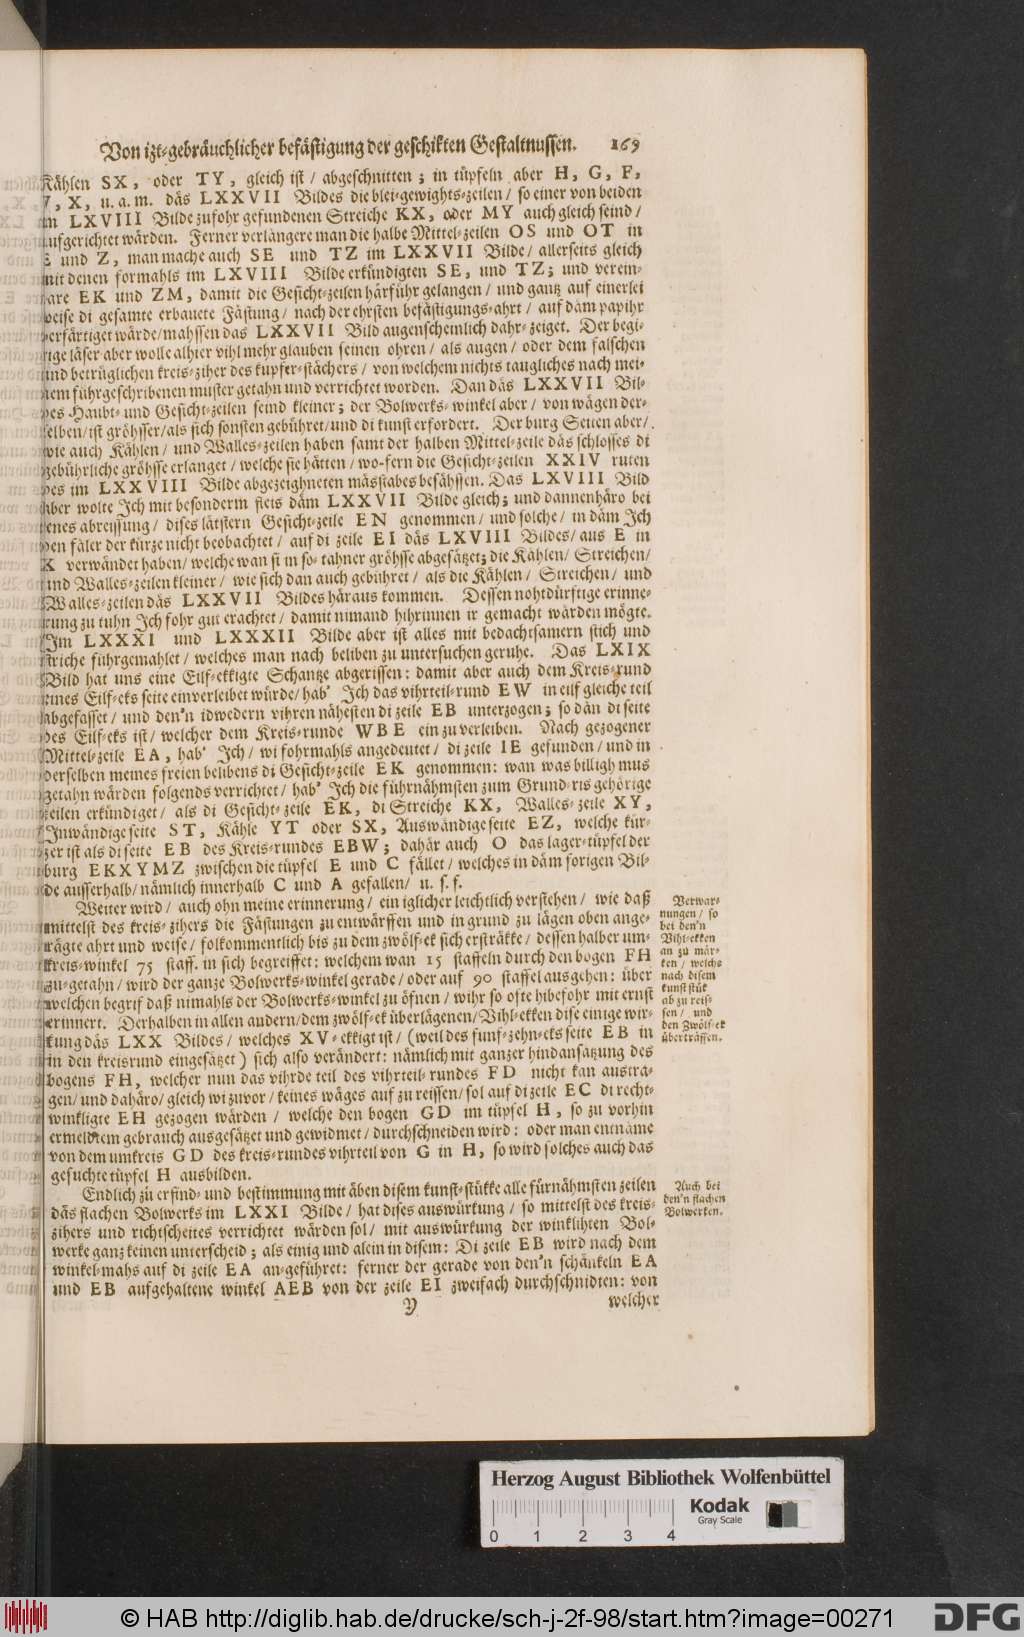 Von izt-gebräuchlicher befästigung der geschikten Gestaltnussen. 169
Kählen SX, oder TY, gleich ist / abgeschnitten; in tüpfeln aber H, G, F,
V, X, u. a. m. däs LXXVII Bildes die blei-gewights-zeilen / so einer von beiden
im LXVIII Bilde zufohr gefundenen Streiche KX, oder MY auch gleich seind /
aufgerichtet wärden. Ferner verlängere man die halbe Mittel-zeilen OS und OT in
E und Z, man mache auch SE und TZ im LXXVII Bilde / allerseits gleich
mit denen formahls im LXVIII Bilde erkündigten SE, und TZ; und verein-
bare EK und ZM, damit die Gesicht-zeilen härführ gelangen / und gantz auf einerlei
weise di gesamte erbauete Fästung / nach der ehrsten befästigungs-ahrt / auf däm papihr
verfärtiget wärde / mahssen das LXXVII Bild augenscheinlich dahr-zeiget. Der begi-
rige läser aber wolle alhier vihl mehr glauben seinen ohren / als augen / oder dem falschen
und betrüglichen kreis-ziher des kupfer-stächers / von welchem nichts taugliches nach mei-
nem führgeschribenen muster getahn und verrichtet worden. Dan däs LXXVII Bil-
des Haubt- und Gesicht-zeilen seind kleiner; der Bolwerks-winkel aber / von wägen der-
selben / ist gröhsser / als sich sonsten gebühret / und di kunst erfordert. Der burg Seuen aber /
wie auch Kählen / und Walles-zeilen haben samt der halben Mittel-zeile däs schlosses di
gebührliche gröhsse erlanget / welche sie hätten / wo-fern die Gesicht-zeilen XXIV ruten
des im LXXVIII Bilde abgezeighneten mässtabes besähssen. Das LXVIII Bild
aber wolte Ich mit besonderm fleis däm LXXVII Bilde gleich; und dannenhäro bei
jenes abreissung / dises lätstern Gesicht-zeile EN genommen / und solche / in däm Ich
den fäler der kürze nicht beobachtet / auf di zeile EI däs LXVIII Bildes / aus E in
K verwändet haben / welche wan si in so-tahner gröhsse abgesätzet; die Kählen / Streichen /
und Walles-zeilen kleiner / wie sich dan auch gebühret / als die Kählen / Streichen / und
Walles-zeilen däs LXXVII Bildes häraus kommen. Dessen nohtdürftige erinne-
rung zu tuhn Ich fohr gut erachtet / damit nimand hihrinnen ir gemacht wärden mögte.
Im LXXXI und LXXXII Bilde aber ist alles mit bedachtsamern stich und
striche führgemahlet / welches man nach beliben zu untersuchen geruhe. Das LXIX
Bild hat uns eine Eilf-ekkigte Schantze abgerissen: damit aber auch dem Kreis-rund
eines Eilf-eks seite einverleibet würde / hab' Ich das vihrteil-rund EW in eilf gleiche teil
abgefasset / und den'n idwedern vihren nähesten di zeile EB unterzogen; so dan di seite
des Eilf-eks ist / welcher dem Kreis-runde WBE ein zu verleiben. Nach gezogener
Mittel-zeile EA, hab' Ich / wi fohrmahls angedeutet / di zeile IE gefunden / und in
derselben meines freien belibens di Gesicht-zeile EK genommen: wan was billigh mus
getahn wärden folgends verrichtet / hab' Ich die führnähmsten zum Grund-ris gehörige
zeilen erkündiget / als di Gesicht-zeile EK, di Streiche KX, Walles-zeile XY,
Inwändige seite ST, Kähle YT oder SX, Auswändige seite EZ, welche kür-
zer ist als di seite EB des Kreis-rundes EBW; dahär auch O das lager-tüpfel der
burg EKXYMZ zwischen die tüpfel E und C fället / welches in däm forigen Bil-
de ausserhalb / nämlich innerhalb C und A gefallen / u. s. f.
Weiter wird / auch ohn meine erinnerung / ein iglicher leichtlich verstehen / wie daß
mittelst des kreis-zihers die Fästungen zu entwärffen und in grund zu lägen oben ange-
rägte ahrt und weise / folkommentlich bis zu dem zwölf-ek sich ersträkke / dessen halber um-
kreis-winkel 75 staff. in sich begreiffet: welchem wan 15 staffeln durch den bogen FH
zu-getahn / wird der ganze Bolwerks-winkel gerade / oder auf 90 staffel ausgehen: über
welchen begrif daß nimahls der Bolwerks-winkel zu öfnen / wihr so ofte hibefohr mit ernst
erinnert. Derhalben in allen andern / dem zwölf-ek überlägenen / Vihl-ekken dise einige wir-
kung däs LXX Bildes / welches XV-ekkigt ist / (weil des funf-zehn-eks seite EB in
in den kreisrund eingesätzet) sich also verändert: nämlich mit ganzer hindansatzung des
bogens FH, welcher nun das vihrde teil des vihrteil-rundes FD nicht kan austra-
gen / und dahäro / gleich wi zuvor / keines wäges auf zu reissen / sol auf di zeile EC di recht-
winkligte EH gezogen wärden / welche den bogen GD im tüpfel H, so zu vorhin
ermeldtem gebrauch ausgesätzet und gewidmet / durchschneiden wird: oder man entnäme
von dem umkreis GD des kreis-rundes vihrteil von G in H, so wird solches auch das
gesuchte tüpfel H ausbilden.
Verwar-
nungen / so
bei den'n
Vihl-ekken
an zu mär-
ken / welche
nach disem
kunststük
ab zu reis-
sen / und
den Zwölf-ek
überträffen.
Endlich zu erfind- und bestimmung mit äben disem kunst-stükke alle fürnähmsten zeilen
däs flachen Bolwerks im LXXI Bilde / hat dises auswürkung / so mittelst des kreis-
zihers und richtscheites verrichtet wärden sol / mit auswürkung der winklihten Bol-
werke ganz keinen unterscheid; als einig und alein in disem: Di zeile EB wird nach dem
winkel-mahs auf di zeile EA an-geführet: ferner der gerade von den'n schänkeln EA
und EB aufgehaltene winkel AEB von der zeile EI zweifach durchschnidten: von
Auch bei
den'n flachen
Bolwerken.
Y welcher
Herzog August Bibliothek Wolfenbüttel
Kodak
Gray Scale
0 1 2 3 4
© HAB http://diglib.hab.de/drucke/sch-j-2f-98/start.htm?image=00271
DFG